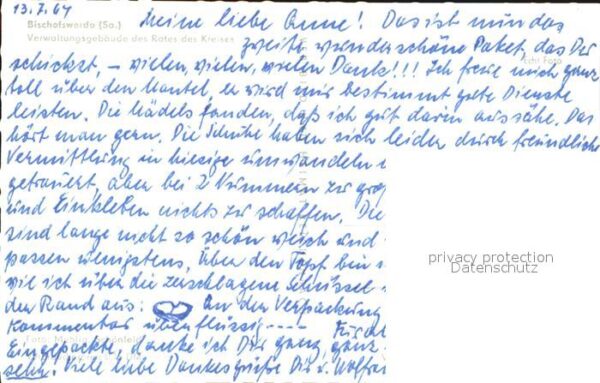 13.7.64 Meine liebe Anne! Das ist nun das
Bischofswerda (Sa.)
Verwaltungsgebäude des Rates des Kreises
zweite wunderschöne Paket, das Du
Echt Foto
schickst, – vielen, vielen, vielen Dank!!! Ich freue mich ganz
toll über den Mantel, er wird mir bestimmt gute Dienste
leisten. Die Mädels fanden, daß ich gut darin aussähe. Das
hört man gern. Die Schuhe haben sich leider durch freundliche
Vermittlung in hiesige umwandeln
getrauert, aber bei 2 Nummern zu groß
und Einkleben nichts zu schaffen. Die
sind lange nicht so schön weich und
passen wenigstens, über den Topf bin
wie ich über die zerschlagene Schüssel
privacy protection
Datenschutz
der Rand aus: An der Verpackung
Kommentar überflüssig----- Für
Eingepackte, danke ich Dir ganz ganz
sehr! Viele liebe Dankesgrüße Dir u. Wolfram